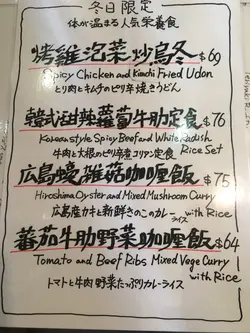 冬日限定
体が温まる人気栄養食
烤雞泡菜炒烏冬 $69
Spicy Chicken and Kimchi Fried Udon
とり肉とキムチのピリ辛焼きうどん
韓式甜辣蘿蔔牛肋定食 $76
Korean style Spicy Beef and White Radish Rice Set
牛肉と大根のピリ辛煮コリアン定食
広島蠔雜菇咖喱飯 $75
Hiroshima Oyster and Mixed Mushroom Curry with Rice
広島産カキと新鮮きのこのカレーライス
蕃茄牛肋野菜咖喱飯 $64
Tomato and Beef Ribs Mixed Vege Curry with Rice
トマトと牛肉野菜たっぷりカレーライス